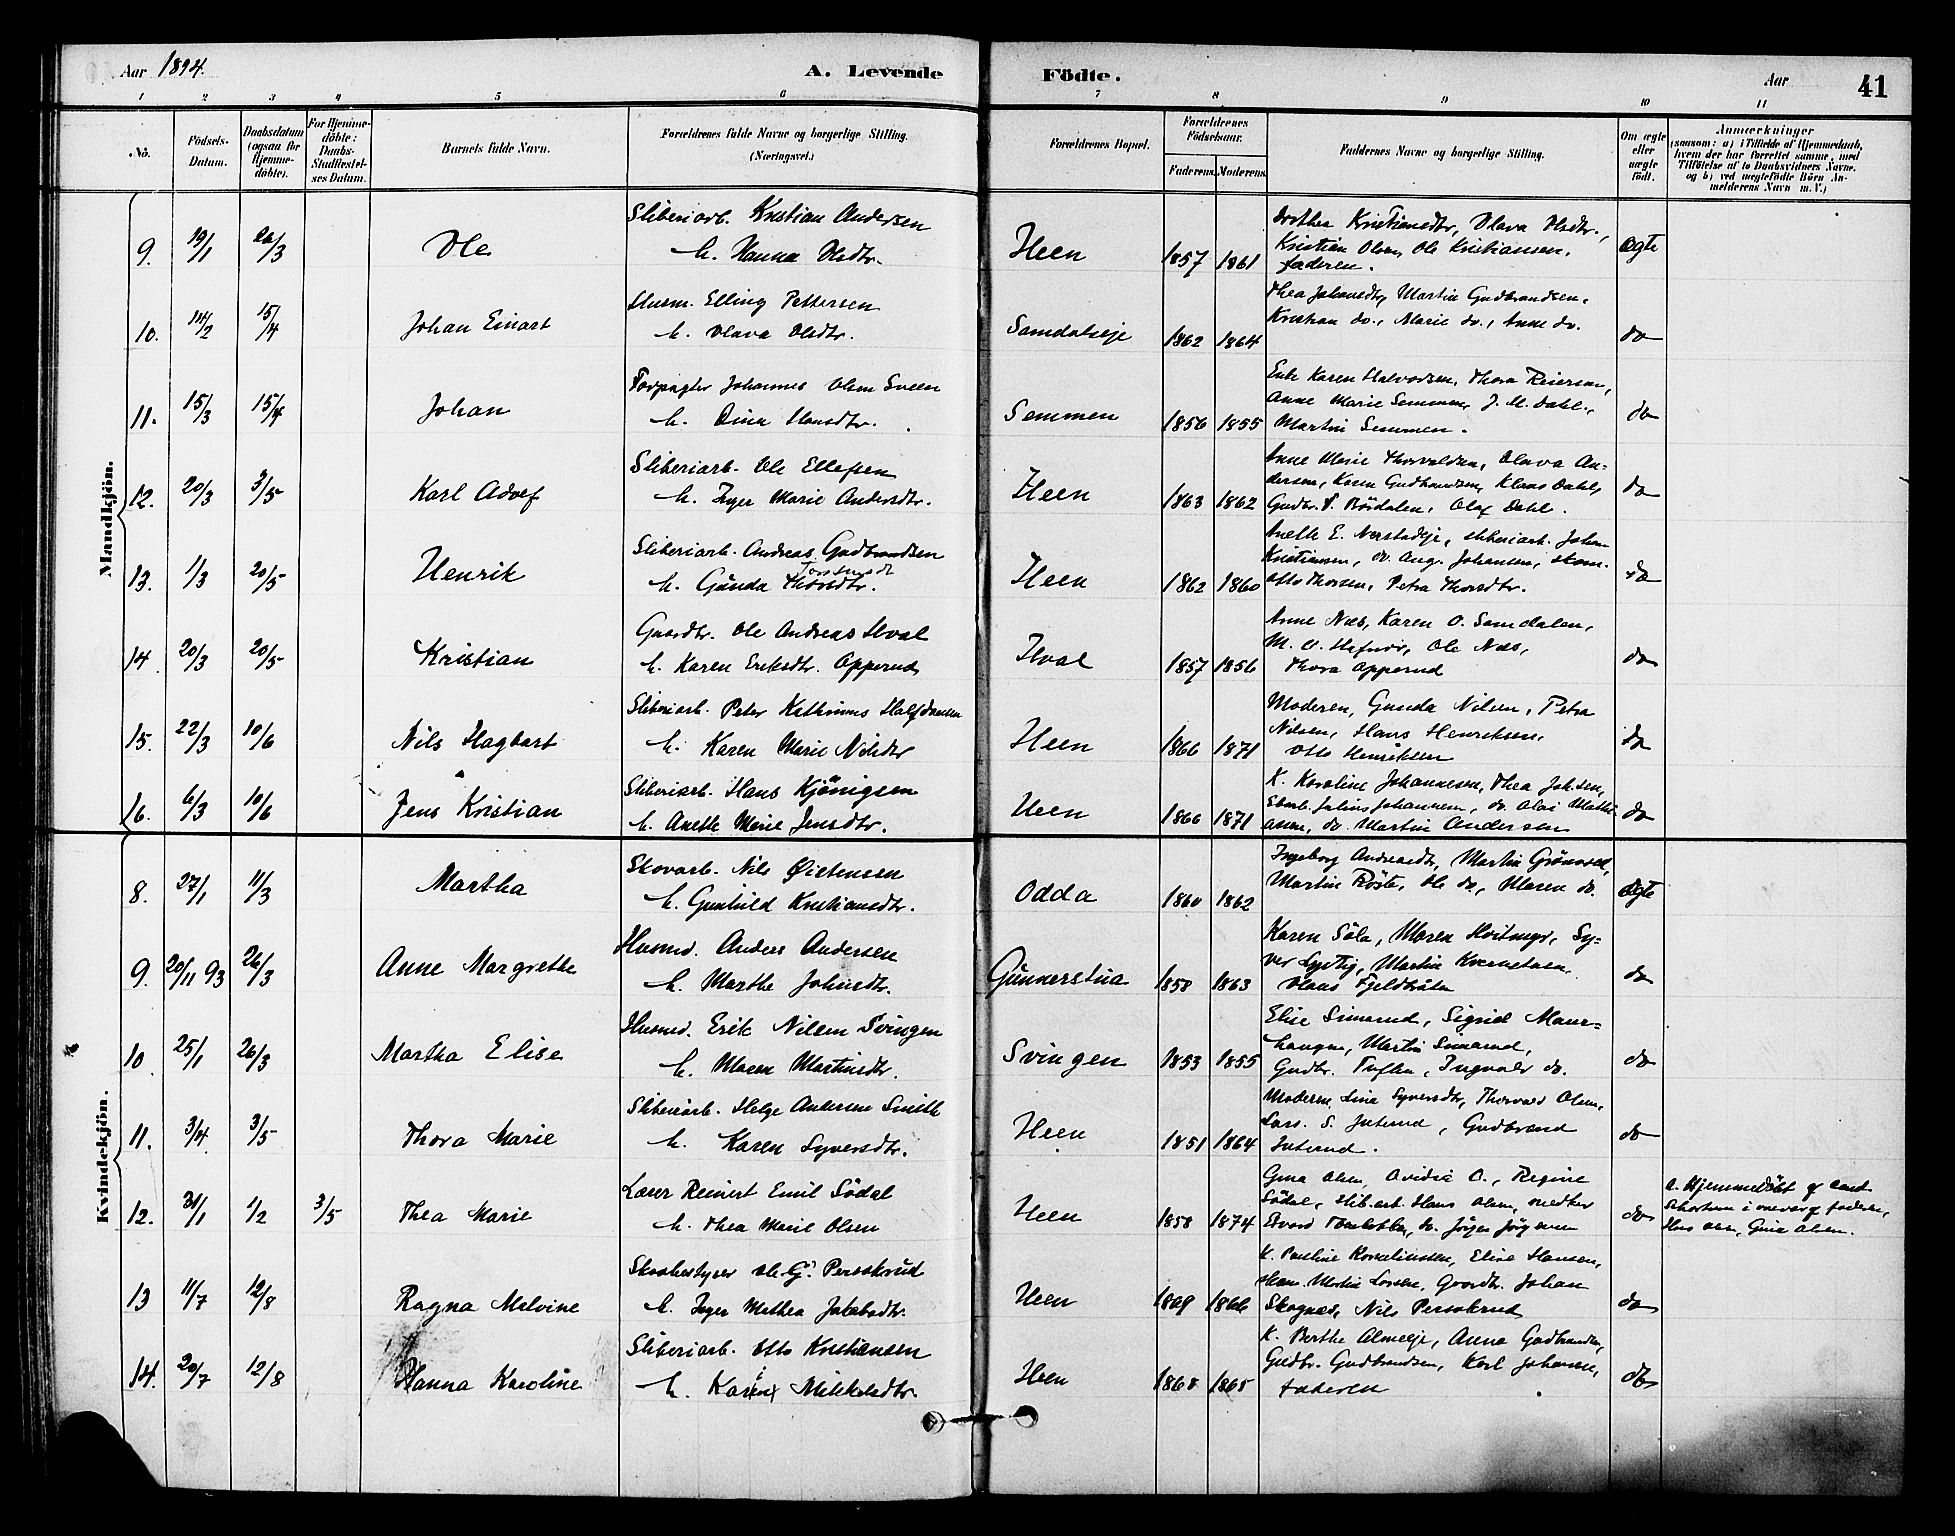 Aar 1894.
A. Levende
Födte.
Aar
41
1 2 3 4 5 6 7 8 9 10 11
No.
Födsels-
Datum.
Daabsdatum
(ogsaa for
Hjemme-
döbte).
For Hjemme-
döbte:
Daabs-
Stadfæstel-
ses Datum.
Barnets fulde Navn.
Forældrenes fulde Navne og borgerlige Stilling.
(Næringsvei.)
Forældrenes Bopæl.
Forældrenes
Födselsaar.
Faderens. Moderens.
Faddernes Navne og borgerlige Stilling.
Om ægte
eller
uægte
födt.
Anmærkninger
(saasom: a) i Tilfælde af Hjemmedaab,
hvem der har forrettet samme, med
Tilföielse af to Daabsvidners Navne.
og b) ved uægtefödte Börn An-
melderens Navn m. V.)
Mandkjön.
9. 19/1 26/3 Ole
Sliberiarb. Kristian Andersen
h. Hanna Olsdtr.
Heen 1857 1861
Dorthea Kristiansdtr, Olava Olsdtr.,
Kristian Olsen, Ole Kristiansen,
faderen.
ægte
10. 14/2 15/4 Johan Einart
Husm. Elling Pettersen
h. Olava Olsdtr.
Samdalseje 1862 1864
Thea Johansdtr, Martin Gudbrandsen,
Kristian do., Marie do., Anne do.
do
11. 15/3 15/4 Johan
Forpagter Johannes Olsen Sveen
h. Dina Hansdtr.
Semmen 1856 1855
Enke Karen Halvorsen, Thora Reiersen,
Anne Marie Semmen, J. M. Dahl,
Martin Semmen.
do
12. 20/3 3/5 Karl Adolf
Sliberiarb. Ole Ellefsen
h. Inger Marie Andersdtr.
Heen 1863 1862
Anne Marie Thorvaldsen, Olava An-
dersen, Karen Gudbrandsen, Klaus Dahl,
Gudbr. Bördalen, Olaf Dahl.
do
13. 1/3 20/5 Henrik
Sliberiarb. Andreas Gudbrandsen
h. Gunda Thorsdtr.
Heen 1862 1860
Anette E. Nerstadeje, sliberiarb. Johan
Kristiansen, do. Aug. Johansen, skom.
Otto Thorsen, Petra Thorsdtr.
do
14. 20/3 20/5 Kristian
Gaardbr. Ole Andreas Hval
h. Karen Eriksdtr. Opperud
Hval 1857 1856
Anne Næs, Karen O. Samdalen,
Ole Næs,
Thora Opperud
do
15. 22/3 10/6 Nils Hagbart
Sliberiarb. Peter Kathinus Halfdansen
h. Karen Marie Nilsdtr
Heen 1866 1871
Moderen, Gunda Nilsen, Petra
Nilsen, Hans Henriksen,
Otto Henriksen
do
16. 6/3 10/6 Jens Kristian
Sliberiarb. Hans Kjönigsen
h. Anette Marie Jensdtr.
Heen 1866 1871
K. Karoline Johannesen, Thea Johsen,
Julius Johannesen, do. Olai Mathi-
asen, do. Martin Andersen
do
Kvindekjön.
8. 27/1 11/3 Martha
Skovarb. Nils Østensen
h. Gunhild Kristiansdtr.
Odda 1860 1862
Ingeborg Andreasdtr, Martin Grönvold,
Martin Röste, Ole do., Maren do.
ægte
9. 20/11 93 26/3 Anne Margrethe
Husmd. Anders Andersen
h. Marthe Johnsdtr.
Gunnerstua 1858 1863
Karen Söla, Maren Hvitmyr, Sy-
ver Lystig, Martin Kvernetuen,
Olaus Fjeldhäta
do
10. 25/1 26/3 Martha Elise
Husmd. Erik Nilsen Svingen
h. Maren Martinsdtr.
Svingen 1853 1855
Elise Simarud, Sigrid Maur-
haugen, Martin Simarud,
Gudbr. Tuften, Ingvald do.
do
11. 3/4 3/5 Thora Marie
Sliberiarb. Helge Andersen Smith
h. Karen Syversdtr.
Heen 1851 1864
Moderen, Lina Syversdtr, Thorvald Olsen,
Lars S. Juterud, Gudbrand
Juterud.
do
12. 31/1 1/2 3/5 Thea Marie
Lærer Reinert Emil Södal
h. Thea Marie Olsen
Heen 1858 1874
Gina Olsen, Ovidia O., Regine
Södal, slib.arb. Hans Olsen, snedker
Edvard, do. Jörgen Jörgensen
do
a. Hjemmedöbt af cand.
i nærvær af faderen,
Hans Olsen, Gina Olsen.
13 11/7 12/8 Ragna Malvine
Skobestyrer Ole G. Persokrud
h. Inger Mathea Jakobsdtr.
Heen 1869 1866
K. Pauline Kornelinssen, Elise Hansen,
skom. Martin Larsen, Gaardbr. Johan
Skognæs, Nils Persokrud
do
14. 20/7 12/8 Hanna Karoline
Sliberiarb. Otto Kristiansen
h. Karen Mikkelsdtr.
Heen 1868 1865
K. Berthe Almeeje, Anna Gudbrandsen,
Gudbr. Gudbrandsen, Karl Johansen,
faderen
do